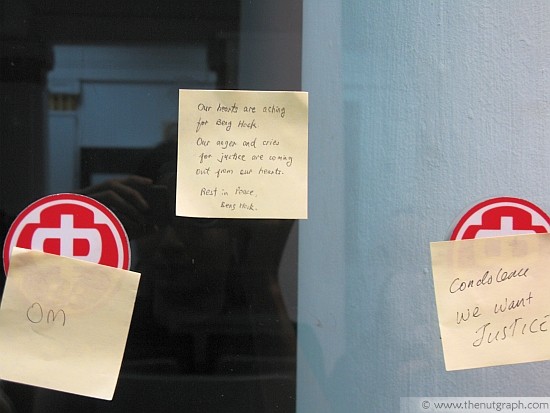 Our hearts are aching
for Beng Hock.
Our anger and cries
for justice are coming
out from our hearts.
Rest in Peace,
Beng Hock.
OM
Condolence
We Want
JUSTICE
© www.thenutgraph.com